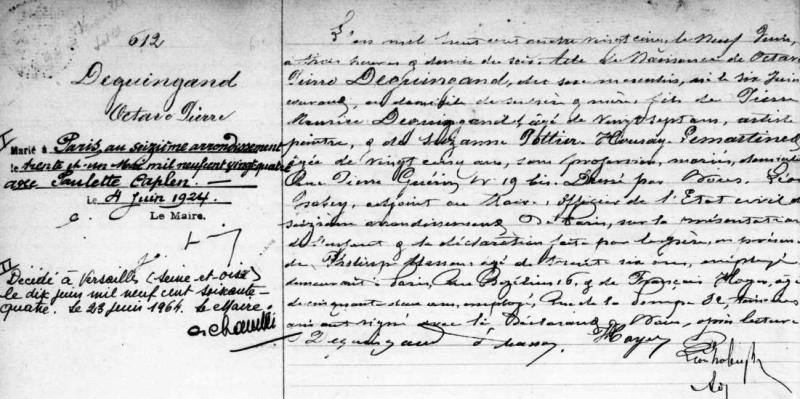 612
Deguingand
Octave Pierre
I
Marié à Paris, au seizième arrondissement
le trente et un Mai mil neuf cent vingt quatre
avec Paulette Caplen. —
Le 4 Juin 1924.
Le Maire.
II
Décédé à Versailles (Seine-et-Oise)
le dix juin mil neuf cent soixante-
quatre. Le 23 juin 1964. Le Maire.
L'an mil huit cent quatre vingt cinq, le neuf Juin,
à trois heures & demie du soir. Acte de Naissance de Octave
Pierre Deguingand, du sexe masculin, né le six Juin
courant, au domicile de ses père & mère; fils de Pierre
Maurice Deguingand, âgé de vingt sept ans, artiste
peintre, & de Suzanne Pottier
âgée de vingt cinq ans, sans profession, mariés,
Rue Pierre Guérin Nº 19 bis. Dressé par Nous, Léon
adjoint au Maire, Officier de l'Etat civil du
seizième arrondissement de Paris, sur la présentation
de l'enfant & la déclaration faite par le père, en présence
de Philippe Masson, âgé de six ans, employé
demeurant à Paris, Rue 16, & de François Hoyer, âgé
de cinquante deux ans, employé, Rue de la Pompe 32, témoins
qui ont signé avec le Déclarant & Nous, après lecture.
Deguingand Masson Hoyer
Adj